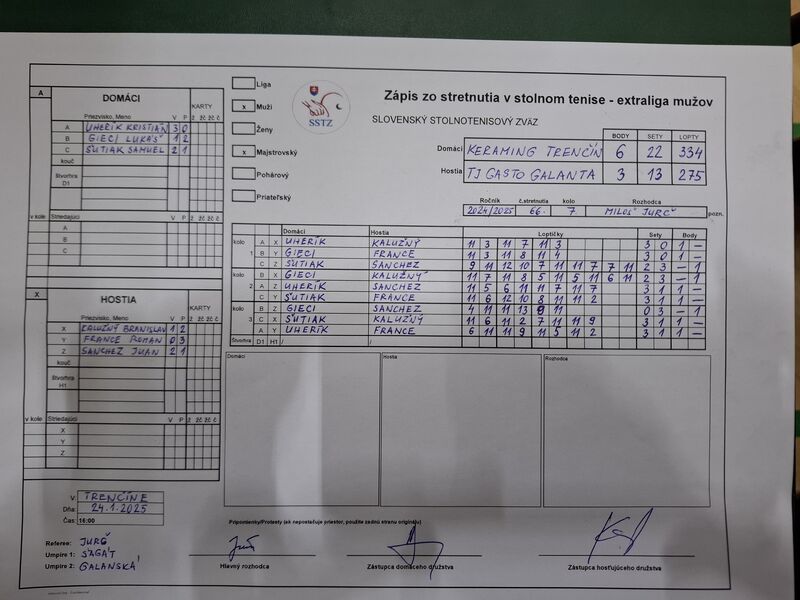 Zápis zo stretnutia v stolnom tenise - extraliga mužov
SLOVENSKÝ STOLNOTENISOVÝ ZVÄZ
SSTZ
Liga
x Muži
Ženy
x Majstrovský
Pohárový
Priateľský
BODY SETY LOPTY
Domáci KERAMING TRENČÍN 6 22 334
Hostia TJ GASTO GALANTA 3 13 275
Ročník č.stretnutia kolo Rozhodca
2024/2025 66. 7. MILOŠ JURČ pozn.
A DOMÁCI
Priezvisko, Meno V P KARTY
A UHERÍK KRISTIAN 3 0
B GIECI LUKÁŠ 1 2
C ŠUTIAK SAMUEL 2 1
kouč
štvorhra
D1
v kole Striedajúci V P
A
B
C
X HOSTIA
Priezvisko, Meno V P KARTY
X KALUŽNÝ BRANISLAV 1 2
Y FRANCE ROMAN 0 3
Z SANCHEZ JUAN 2 1
kouč
štvorhra
H1
v kole Striedajúci V P
X
Y
Z
Domáci Hostia Loptičky Sety Body
kolo A X UHERÍK KALUŽNÝ 11 3 11 7 11 3 3 0 1 –
1 B Y GIECI FRANCE 11 3 11 8 11 4 3 0 1 –
C Z ŠUTIAK SANCHEZ 9 11 12 10 7 11 11 7 7 11 2 3 – 1
kolo B X GIECI KALUŽNÝ 11 7 11 8 5 11 5 11 6 11 2 3 – 1
2 A Z UHERÍK SANCHEZ 11 5 6 11 11 7 11 7 3 1 1 –
C Y ŠUTIAK FRANCE 11 6 12 10 8 11 11 2 3 1 1 –
kolo B Z GIECI SANCHEZ 4 11 11 13 9 11 0 3 – 1
3 C X ŠUTIAK KALUŽNÝ 11 6 11 2 7 11 11 9 3 1 1 –
A Y UHERÍK FRANCE 6 11 11 9 11 5 11 2 3 1 1 –
štvorhra D1 H1 / /
Domáci Hostia Rozhodca
V: TRENČÍNE
Dňa: 24.1.2025
Čas: 16:00
Pripomienky/Protesty (ak nepostačuje priestor, použite zadnú stranu originálu)
Referee: JURČ
Umpire 1: SAGÁT
Umpire 2: GALANSKÁ
Hlavný rozhodca
Zástupca domáceho družstva
Zástupca hosťujúceho družstva